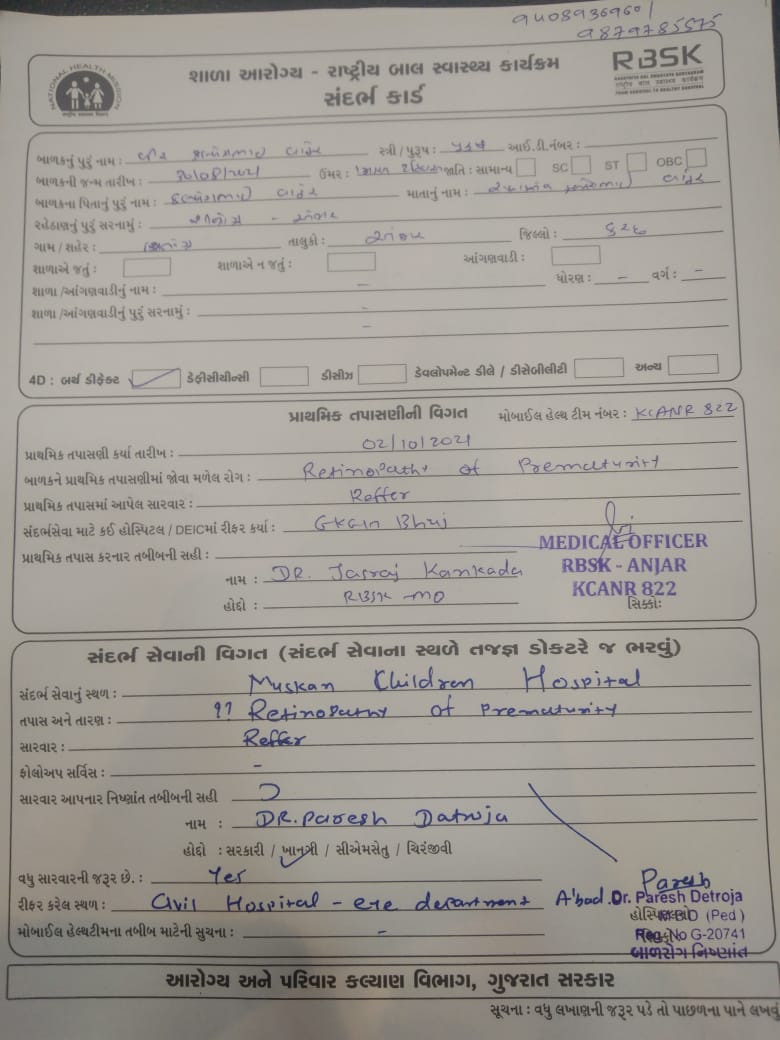 9408936960 /
9879785575
NATIONAL HEALTH MISSION
શાળા આરોગ્ય - રાષ્ટ્રીય બાલ સ્વાસ્થ્ય કાર્યક્રમ
સંદર્ભ કાર્ડ
RBSK
RASHTRIYA BAL SWASTHYA KARYAKRAM
FROM SURVIVAL TO HEALTHY SURVIVAL
બાળકનું પુરું નામ : સ્ત્રી / પુરૂષ : પુરૂષ આઈ.ડી.નંબર :
બાળકની જન્મ તારીખ : ઉંમર : જાતિ : સામાન્ય SC ST OBC
બાળકના પિતાનું પુરું નામ : માતાનું નામ :
રહેઠાણનું પુરું સરનામું : - અંજાર
ગામ / શહેર : તાલુકો : અંજાર જિલ્લો : કચ્છ
શાળાએ જતું : શાળાએ ન જતું : આંગણવાડી :
શાળા /આંગણવાડીનું નામ : - ધોરણ : - વર્ગ : -
શાળા /આંગણવાડીનું પુરું સરનામું : -
-
4D : બર્થ ડીફેક્ટ ડેફીસીયીન્સી ડીસીઝ ડેવલોપમેન્ટ ડીલે / ડીસેબીલીટી અન્ય
પ્રાથમિક તપાસણીની વિગત મોબાઈલ હેલ્થ ટીમ નંબર : KCANR 822
પ્રાથમિક તપાસણી કર્યા તારીખ : 02/10/2021
બાળકને પ્રાથમિક તપાસણીમાં જોવા મળેલ રોગ : Retinopathy of Prematurity
પ્રાથમિક તપાસમાં આપેલ સારવાર : Reffer
સંદર્ભસેવા માટે કઈ હોસ્પિટલ / DEICમાં રીફર કર્યા : GKGH Bhuj
પ્રાથમિક તપાસ કરનાર તબીબની સહી :
MEDICAL OFFICER
RBSK - ANJAR
KCANR 822
નામ : DR. Jasraj Kankada
હોદ્દો : RBSK MO સિક્કો:
સંદર્ભ સેવાની વિગત (સંદર્ભ સેવાના સ્થળે તજજ્ઞ ડોકટરે જ ભરવું)
સંદર્ભ સેવાનું સ્થળ : Muskan Children Hospital
તપાસ અને તારણ : ?? Retinopathy of Prematurity
સારવાર : Reffer
ફોલોઅપ સર્વિસ : -
સારવાર આપનાર નિષ્ણાંત તબીબની સહી
નામ : DR. Paresh Datroja
હોદ્દો : સરકારી / ખાનગી / સીએમસેતુ / ચિરંજીવી
વધુ સારવારની જરૂર છે. : Yes
Paresh
રીફર કરેલ સ્થળ : Civil Hospital - eye department A'bad.
Dr. Paresh Detroja
(Ped)
Reg. No G-20741
બાળરોગ નિષ્ણાંત
મોબાઈલ હેલ્થટીમના તબીબ માટેની સુચના : -
આરોગ્ય અને પરિવાર કલ્યાણ વિભાગ, ગુજરાત સરકાર
સૂચના : વધુ લખાણની જરૂર પડે તો પાછળના પાને લખવું